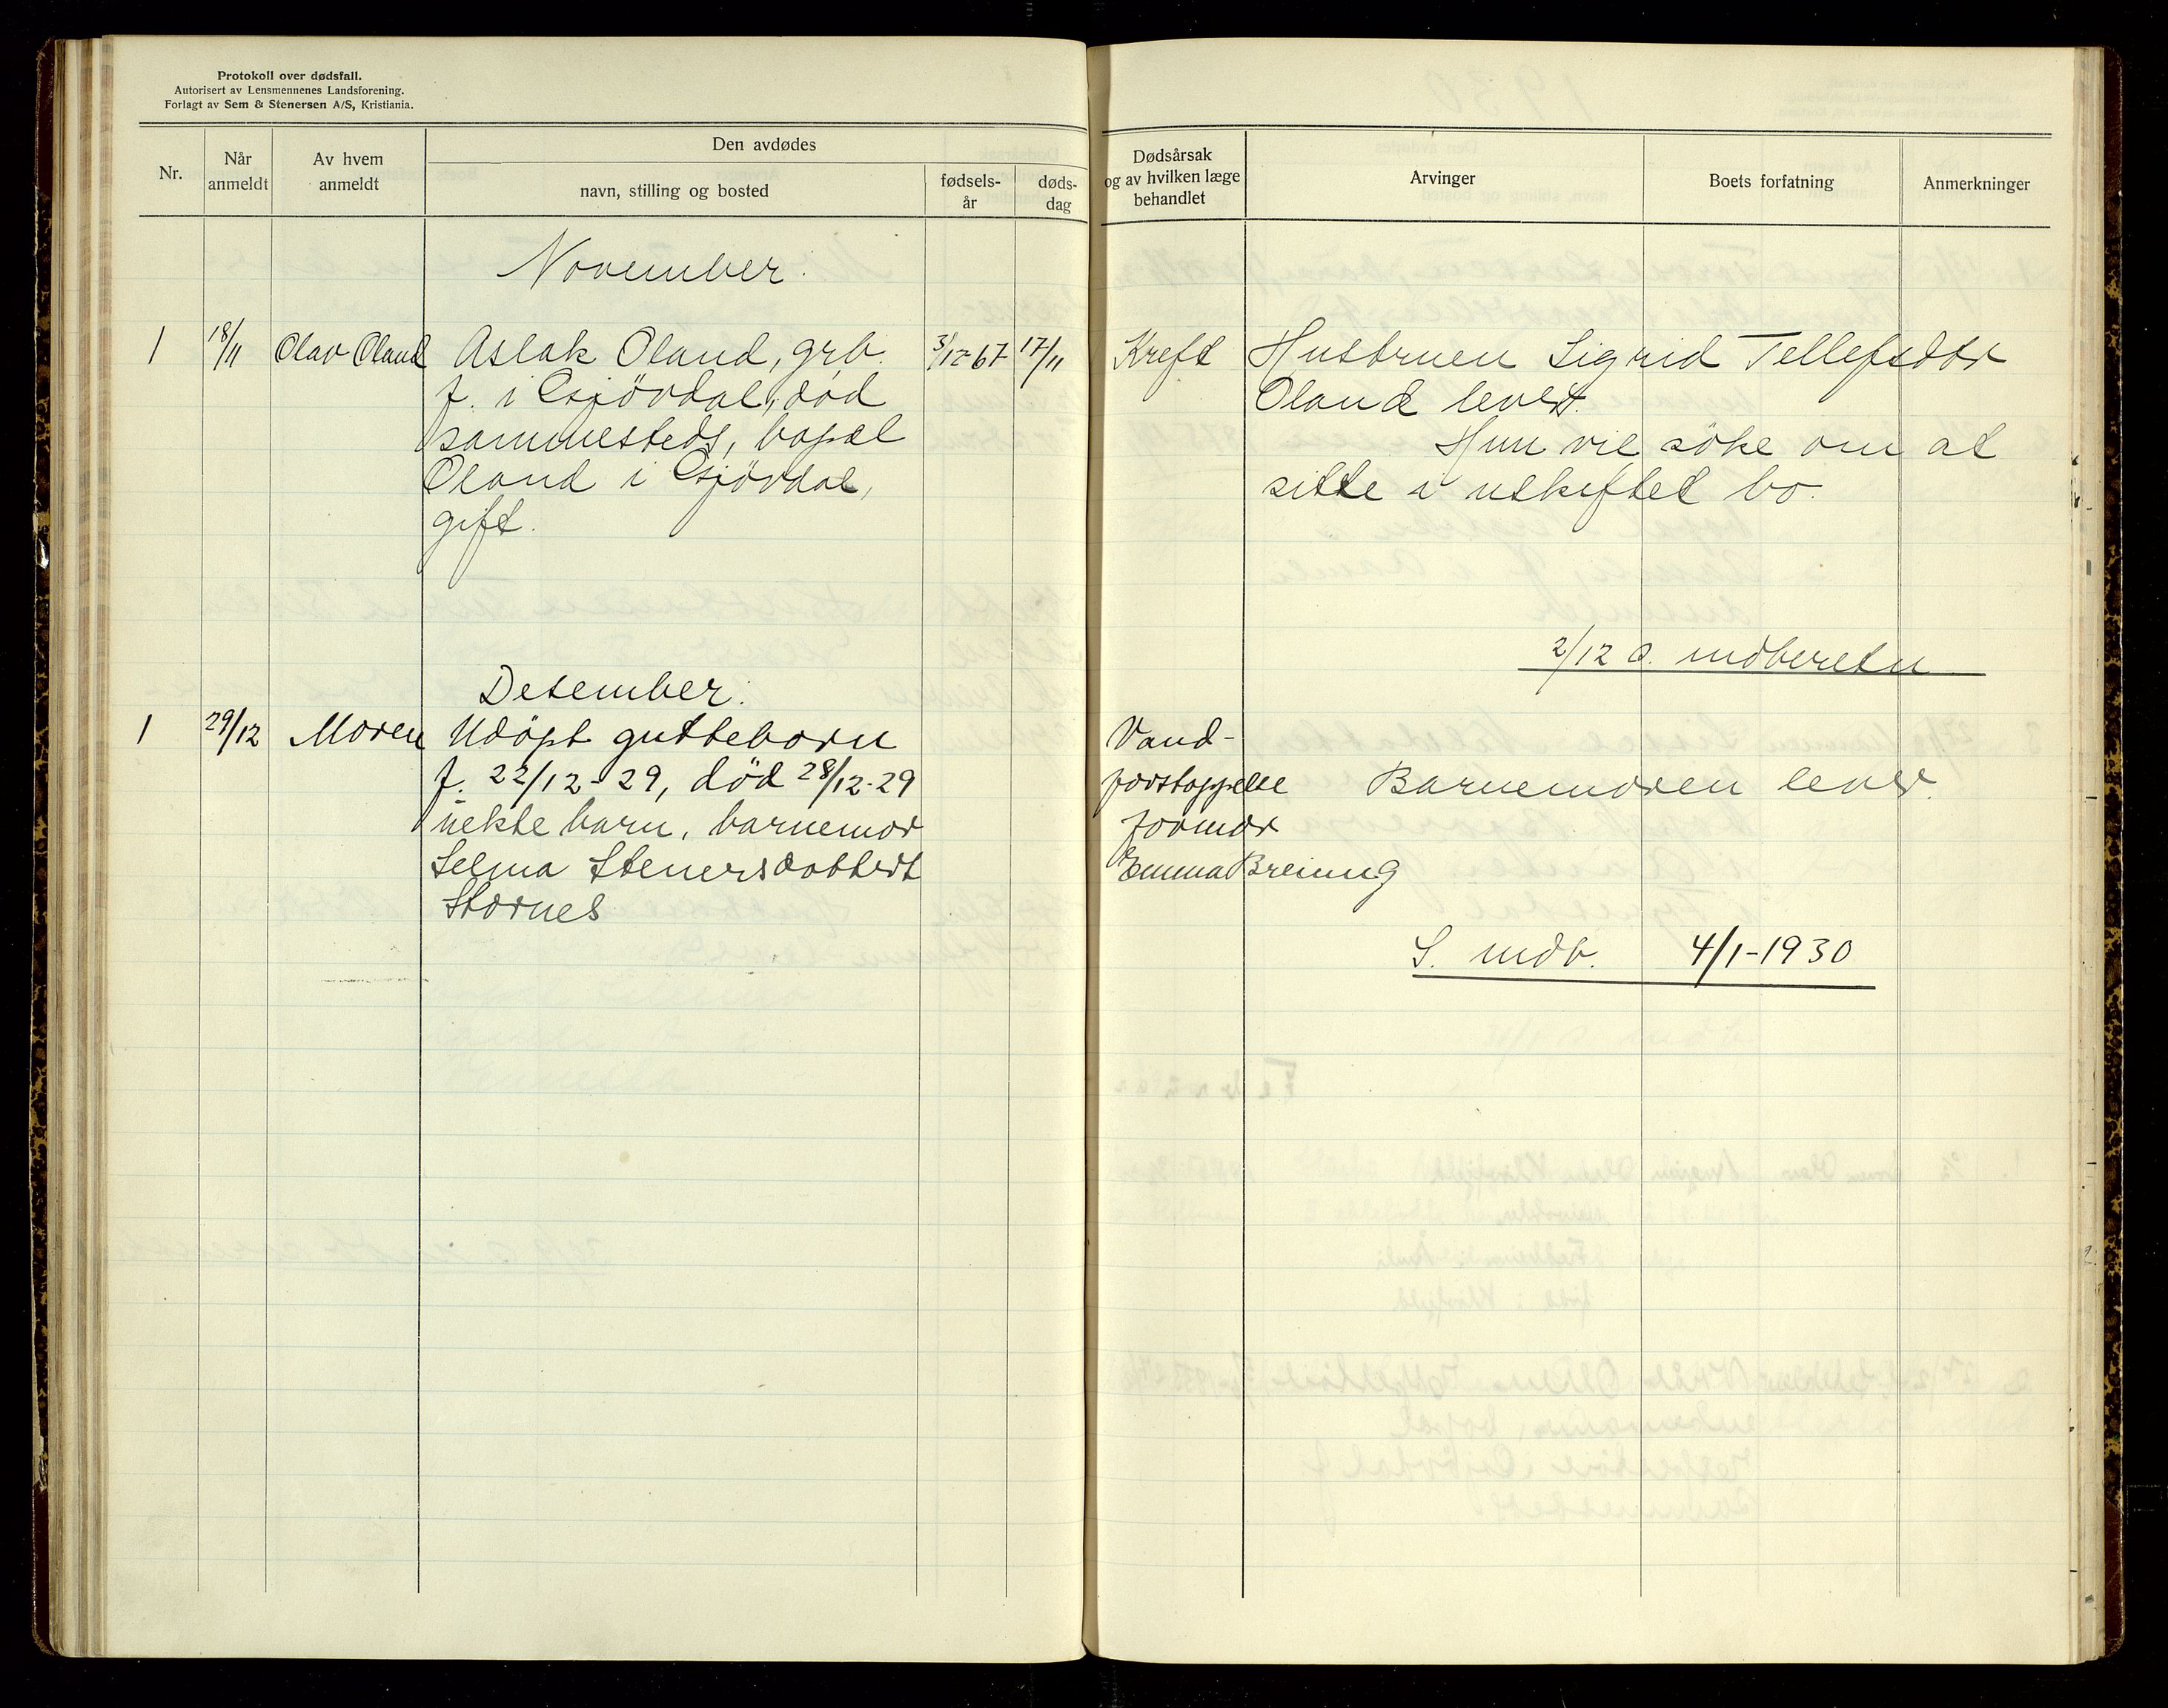 Protokoll over dødsfall.
Autorisert av Lensmennenes Landsforening.
Forlagt av Sem & Stenersen A/S, Kristiania.
Nr.
Når anmeldt
Av hvem anmeldt
Den avdødes
navn, stilling og bosted
fødsels-år
døds-dag
Dødsårsak og av hvilken læge behandlet
Arvinger
Boets forfatning
Anmerkninger
November.
1 18/11 Olav Oland Aslak Oland, grb. 3/12-67 17/11 Kreft Hustruen Sigrid Tellefsdtr
f. i Gjövdal, död Oland lever.
sammesteds, bopæl Hun vil söke om at
Oland i Gjövdal, sitte i uskiftet bo.
gift.
2/12 a. indberetn
Desember.
1 29/12 Moren Udöpt guttebarn Vand-
f. 22/12-29, död 28/12-29 forstoppelse Barnemoren lever.
uekte barn, barnemor jormor
Selma Stenersdotter Emma Breiung
Stornes
S. indb. 4/1-1930